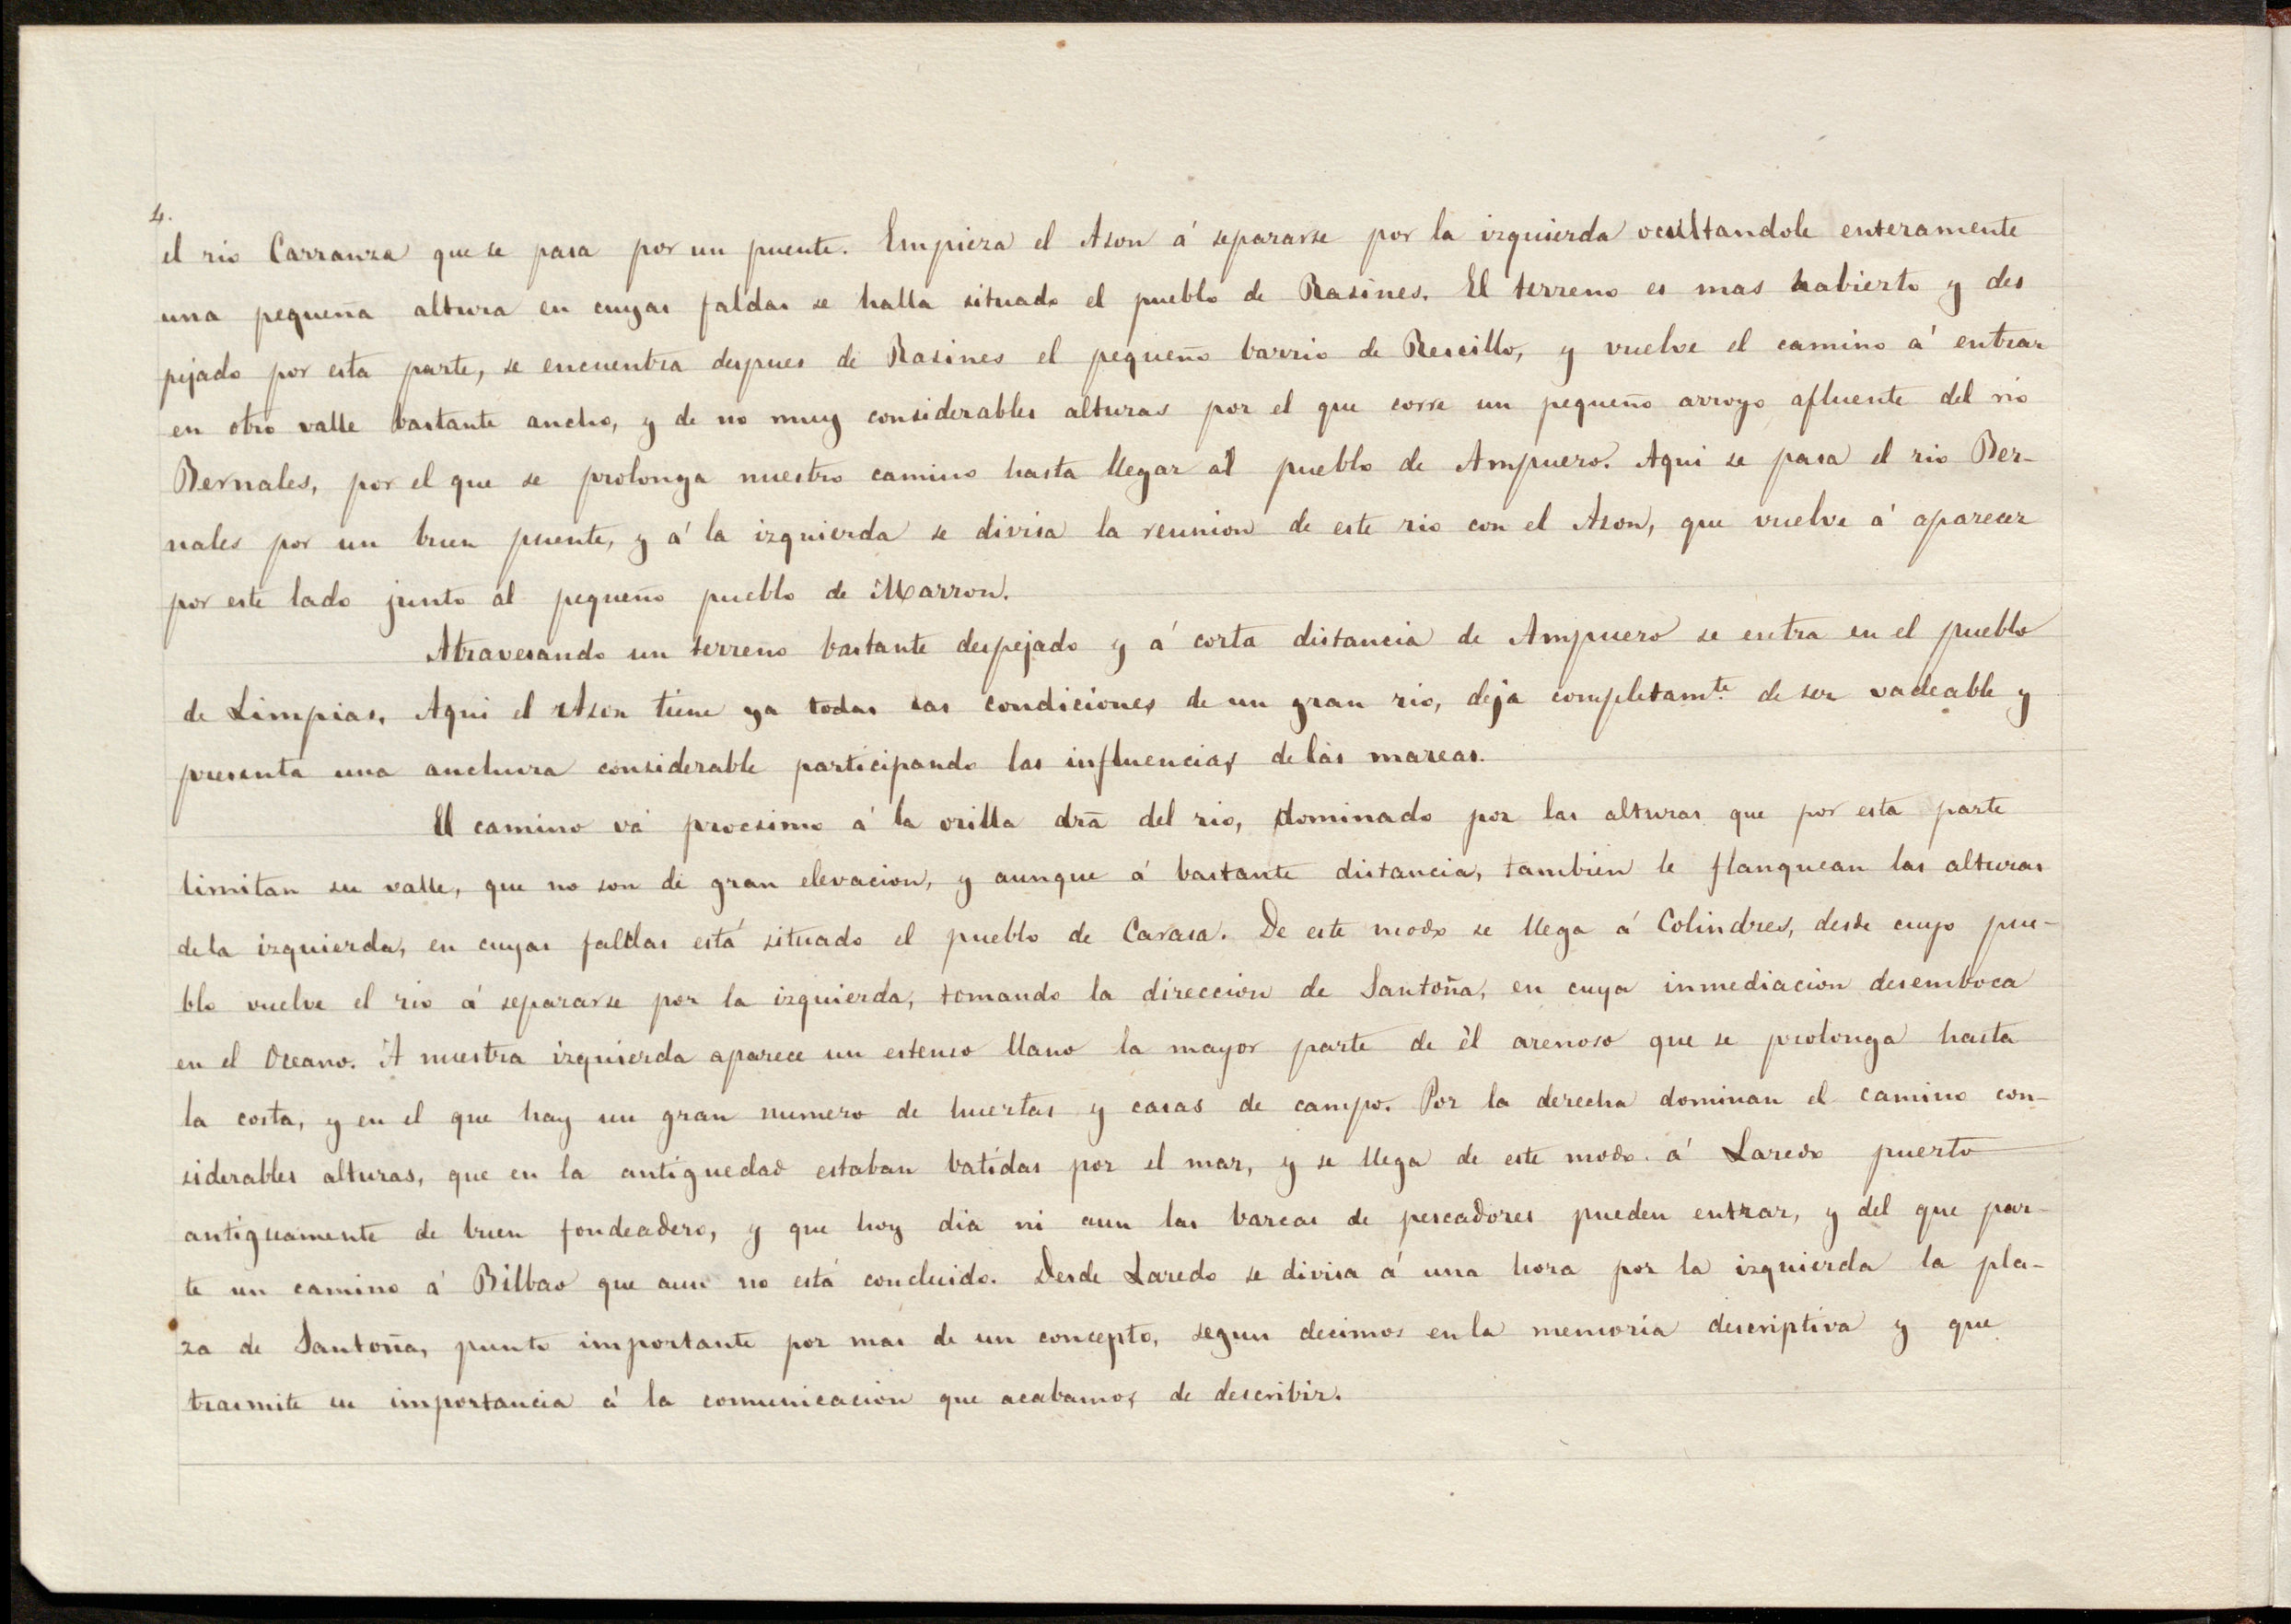 4.
el rio Carranza que se pasa por un puente. Empieza el Ason á separarse por la izquierda ocultandole enteramente
una pequeña altura en cuyas faldas se halla situado el pueblo de Rasines. El terreno es mas habierto y des
pejado por esta parte, se encuentra despues de Rasines el pequeño barrio de Rescillo, y vuelve el camino á entrar
en otro valle bastante ancho, y de no muy considerables alturas por el que corre un pequeño arroyo afluente del rio
Bernales, por el que se prolonga nuestro camino hasta llegar al pueblo de Ampuero. Aqui se pasa el rio Ber-
nales por un buen puente, y á la izquierda se divisa la reunion de este rio con el Ason, que vuelve á aparecer
por este lado junto al pequeño pueblo de Marron.
Atravesando un terreno bastante despejado y á corta distancia de Ampuero se entra en el pueblo
de Limpias. Aqui el Ason tiene ya todas las condiciones de un gran rio, deja completamte. de ser vadeable y
presenta una anchura considerable participando las influencias de las mareas.
El camino vá procsimo á la orilla dra̅ del rio, dominado por las alturas que por esta parte
limitan su valle, que no son de gran elevacion, y aunque á bastante distancia, tambien le flanquean las alturas
de la izquierda, en cuyas faldas está situado el pueblo de Carasa. De este modo se llega á Colindres, desde cuyo pue-
blo vuelve el rio á separarse por la izquierda, tomando la direccion de Santoña, en cuya inmediacion desemboca
en el Oceano. A nuestra izquierda aparece un estenso llano la mayor parte de él arenoso que se prolonga hasta
la costa, y en el que hay un gran numero de huertas y casas de campo. Por la derecha dominan el camino con-
siderables alturas, que en la antiguedad estaban batidas por el mar, y se llega de este modo á Laredo puerto
antiguamente de buen fondeadero, y que hoy dia ni aun las barcas de pescadores pueden entrar, y del que par-
te un camino á Bilbao que aun no está concluido. Desde Laredo se divisa á una hora por la izquierda la pla-
za de Santoña, punto importante por mas de un concepto, segun decimos en la memoria descriptiva y que
trasmite su importancia á la comunicacion que acabamos de describir.